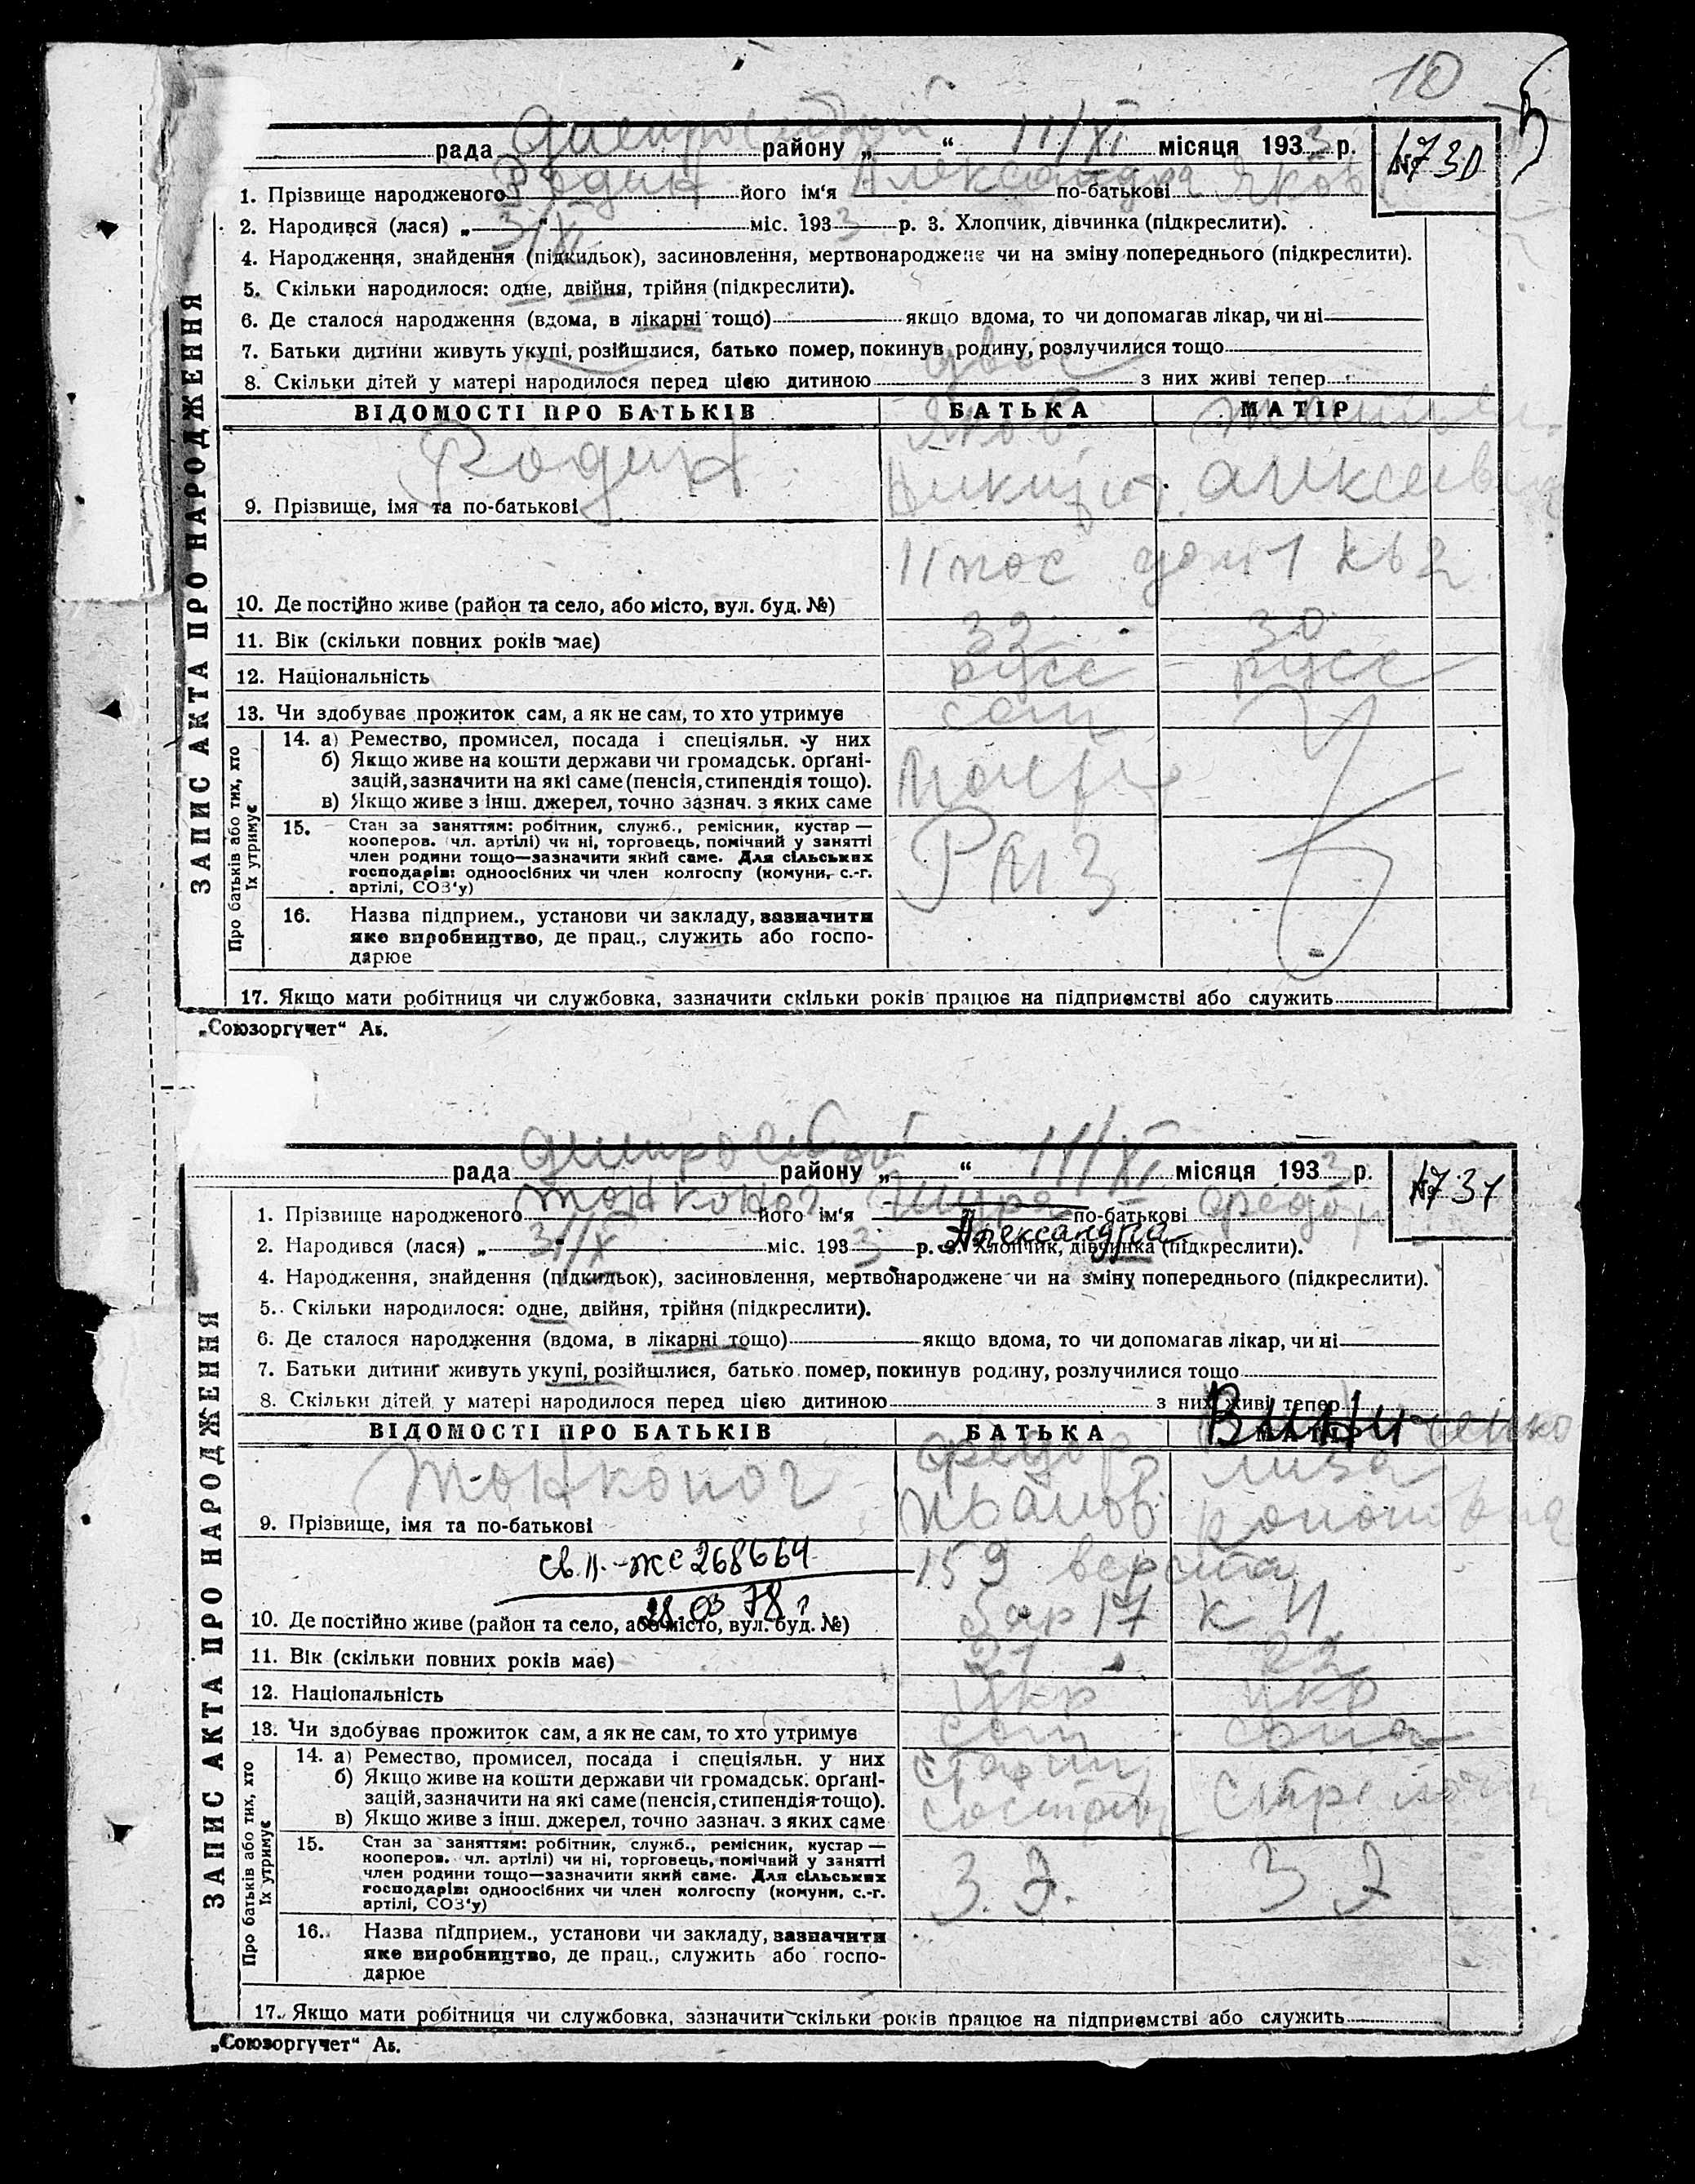 10
рада Днепровской району „ “ 11/XI місяця 1933 р. №730
1. Прізвище народженого Родин його ім‘я Александра по-батькові Яков
2. Народився (лася) „ 3/XI “ міс. 1933 р. 3. Хлопчик, дівчинка (підкреслити).
4. Народження, знайдення (підкидьок), засиновлення, мертвонароджене чи на зміну попереднього (підкреслити).
5. Скільки народилося: одне, двійня, трійня (підкреслити).
6. Де сталося народження (вдома, в лікарні тощо) якщо вдома, то чи допомагав лікар, чи ні
7. Батьки дитини живуть укупі, розійшлися, батько помер, покинув родину, розлучилися тощо
8. Скільки дітей у матері народилося перед цією дитиною двое з них живі тепер
ЗАПИС АКТА ПРО НАРОДЖЕННЯ
ВІДОМОСТІ ПРО БАТЬКІВ БАТЬКА МАТІР
Родин Яков
9. Прізвище, імя та по-батькові Никит. Алексеевна
11 пос дом 1 кв 2
10. Де постійно живе (район та село, або місто, вул. буд. №)
11. Вік (скільки повних років має) 32 30
12. Національність русс русс
13. Чи здобуває прожиток сам, а як не сам, то хто утримує сам
Про батьків або тих, хто їх утримує
14. а) Ремество, промисел, посада і спеціяльн. у них
б) Якщо живе на кошти держави чи громадськ. орґані-
зацій, зазначити на які саме (пенсія, стипендія тощо).
в) Якщо живе з інш. джерел, точно зазнач. з яких саме
15. Стан за заняттям: робітник, служб., ремісник, кустар —
кооперов. (чл. артілі) чи ні, торговець, помічний у занятті
член родини тощо—зазначити який саме. Для сільських
господарів: одноосібних чи член колгоспу (комуни, с.-г.
артілі, СОЗ‘у)
РМЗ
16. Назва підприєм., установи чи закладу, зазначити
яке виробництво, де прац., служить або госпо-
дарює
17. Якщо мати робітниця чи службовка, зазначити скільки років працює на підприємстві або служить
„Союзоргучет“ Аб.
рада Днипровской району „ “ 11/XI місяця 1933 р. №731
1. Прізвище народженого Тонконог його ім‘я Шура по-батькові Федор
Александра
2. Народився (лася) „ 3/X “ міс. 1933 р. 3. Хлопчик, дівчинка (підкреслити).
4. Народження, знайдення (підкидьок), засиновлення, мертвонароджене чи на зміну попереднього (підкреслити).
5. Скільки народилося: одне, двійня, трійня (підкреслити).
6. Де сталося народження (вдома, в лікарні тощо) якщо вдома, то чи допомагав лікар, чи ні
7. Батьки дитини живуть укупі, розійшлися, батько помер, покинув родину, розлучилися тощо
8. Скільки дітей у матері народилося перед цією дитиною з них живі тепер
ЗАПИС АКТА ПРО НАРОДЖЕННЯ
ВІДОМОСТІ ПРО БАТЬКІВ БАТЬКА МАТІР Винниченко
Тонконог Федор Лиза
9. Прізвище, імя та по-батькові Иванов
св. II-ЖС 268664 159 верста
28 03 78 г. бар 17 к 11
10. Де постійно живе (район та село, або місто, вул. буд. №)
11. Вік (скільки повних років має) 27 22
12. Національність укр укр
13. Чи здобуває прожиток сам, а як не сам, то хто утримує сам сама
Про батьків або тих, хто їх утримує
14. а) Ремество, промисел, посада і спеціяльн. у них
б) Якщо живе на кошти держави чи громадськ. орґані-
зацій, зазначити на які саме (пенсія, стипендія тощо).
в) Якщо живе з інш. джерел, точно зазнач. з яких саме
15. Стан за заняттям: робітник, служб., ремісник, кустар —
кооперов. чл. артілі) чи ні, торговець, помічний у занятті
член родини тощо—зазначити який саме. Для сільських
господарів: одноосібних чи член колгоспу (комуни, с.-г.
артілі, СОЗ‘у)
16. Назва підприєм., установи чи закладу, зазначити
яке виробництво, де прац., служить або госпо-
дарює
17. Якщо мати робітниця чи службовка, зазначити скільки років працює на підприємстві або служить
„Союзоргучет“ Аб.